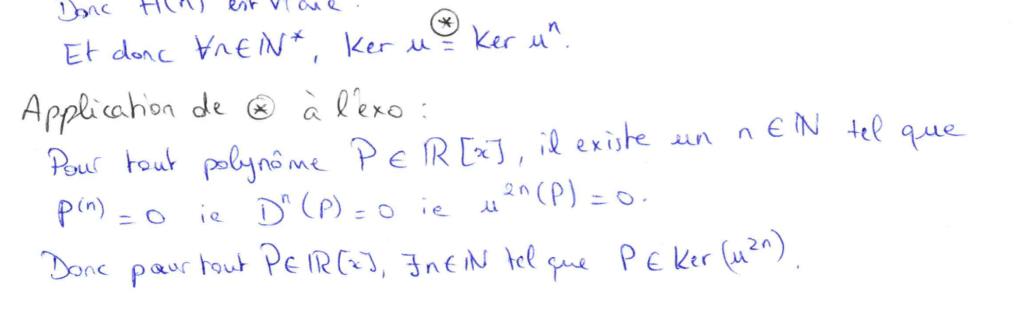 Donc H(n) est vraie.
Et donc ∀n∈ℕ*, Ker u ⊛= Ker uⁿ.
Application de ⊛ à l'exo :
Pour tout polynôme P ∈ ℝ[x], il existe un n ∈ ℕ tel que
P⁽ⁿ⁾ = 0 ie Dⁿ(P) = 0 ie u²ⁿ(P) = 0.
Donc pour tout P∈ℝ[x], ∃n∈ℕ tel que P ∈ Ker(u²ⁿ).